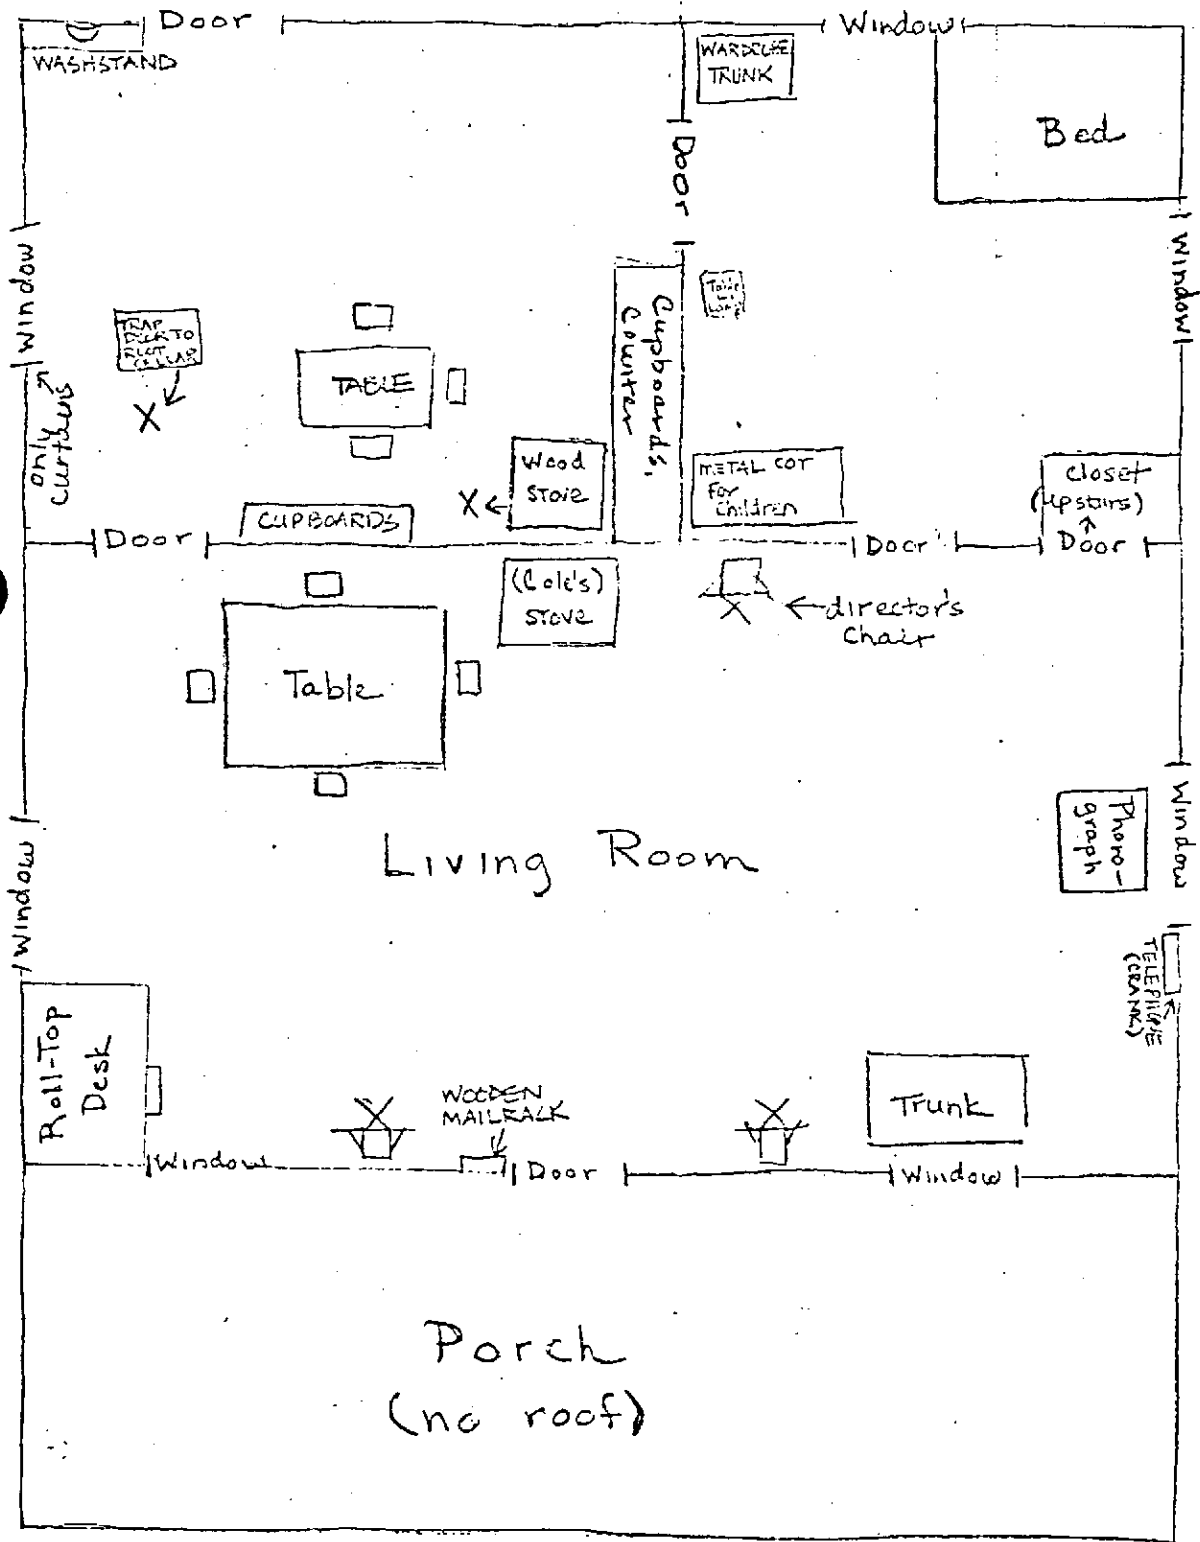 Door
Window
WASHSTAND
WARDROBE
TRUNK
Bed
Door
Window
Window
only
curtains
TRAP
DOOR TO
ROOT
CELLAR
X
TABLE
Cupboards,
Counter
Table
Wood
Stove
X
METAL COT
For
Children
Closet
(upstairs)
CUPBOARDS
Door
Door
Door
(Cole's)
Stove
X
director's
Chair
Table
Living Room
Window
Phono-
graph
Window
TELEPHONE
(CRANK)
Roll-Top
Desk
X
WOODEN
MAILRACK
X
Trunk
Window
Door
Window
Porch
(no roof)